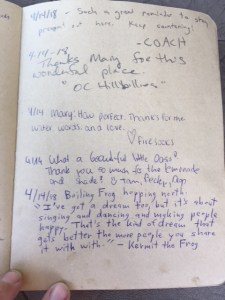 4/14/18 - Such a great reminder to stay
present out here. Keep smiling!
-COACH
4-14-18
Thanks Mary for this
wonderful place.
"OC Hillbillies"
4/14 Mary: How perfect. Thanks for the
water, words and love.
4/14 What a beautiful little Oasis!
Thank you so much for the lemonade
and shade!
4/14/18 Boiling Frog hopping north.
"I've got a dream too, but it's about
singing and dancing and making people
happy. That's the kind of dream that
gets better the more people you share
it with with." - Kermit the Frog